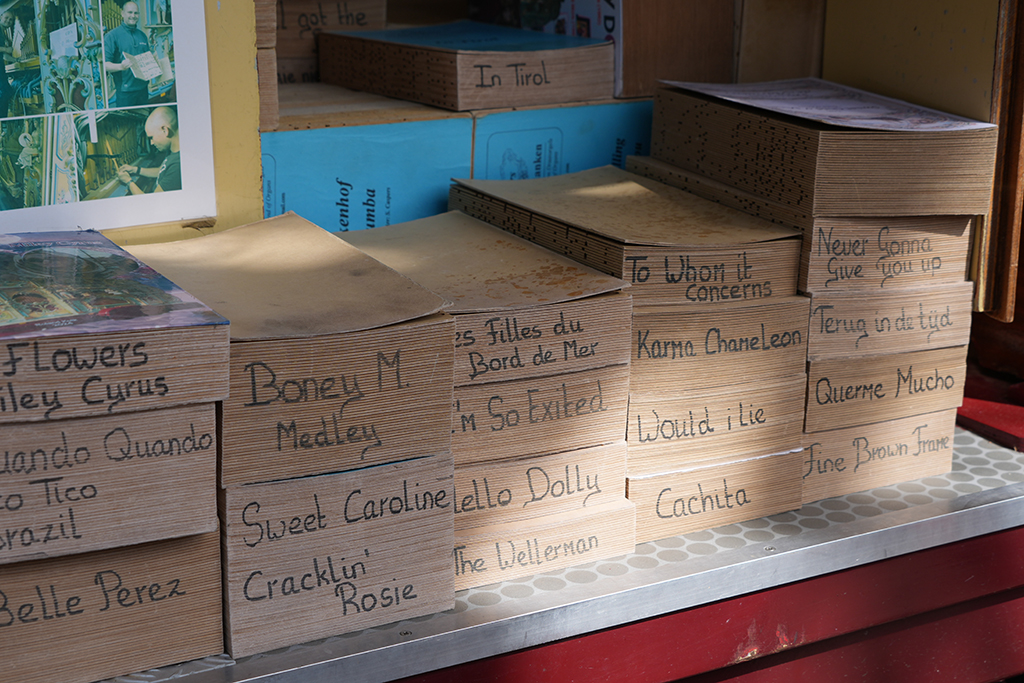 I got the
In Tirol
Flowers
iley Cyrus
uando Quando
co Tico
Brazil
Belle Perez
Boney M.
Medley
Sweet Caroline
Cracklin'
Rosie
es Filles du
Bord de Mer
I'm So Exited
ello Dolly
The Wellerman
To Whom it
concerns
Karma Chameleon
Would i Lie
Cachita
Never Gonna
Give you up
Terug in de tijd
Querme Mucho
Fine Brown Frame